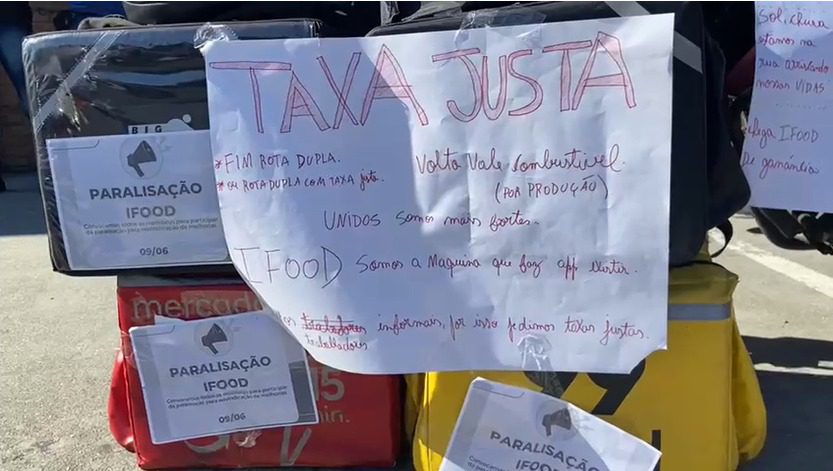 TAXA JUSTA
* FIM ROTA DUPLA.
* OU ROTA DUPLA COM TAXA justa.
Volta Vale Combustível.
(POR PRODUÇÃO)
UNIDOS somos mais fortes.
IFOOD somos a Maquina que faz app existir.
informais, por isso pedimos taxas justas.
trabalhadores
Sol, chuva
estamos na
rua arriscando
nossas VIDAS
chega IFOOD
De ganância
BIG
PARALISAÇÃO
IFOOD
Convocamos todos os motoboys para participar
da paralisação para reivindicação de melhorias
09/06
mercado
15
min.
PARALISAÇÃO
IFOOD
Convocamos todos os motoboys para participar
da paralisação para reivindicação de melhorias
09/06
99
PARALISAÇÃO
IFOOD